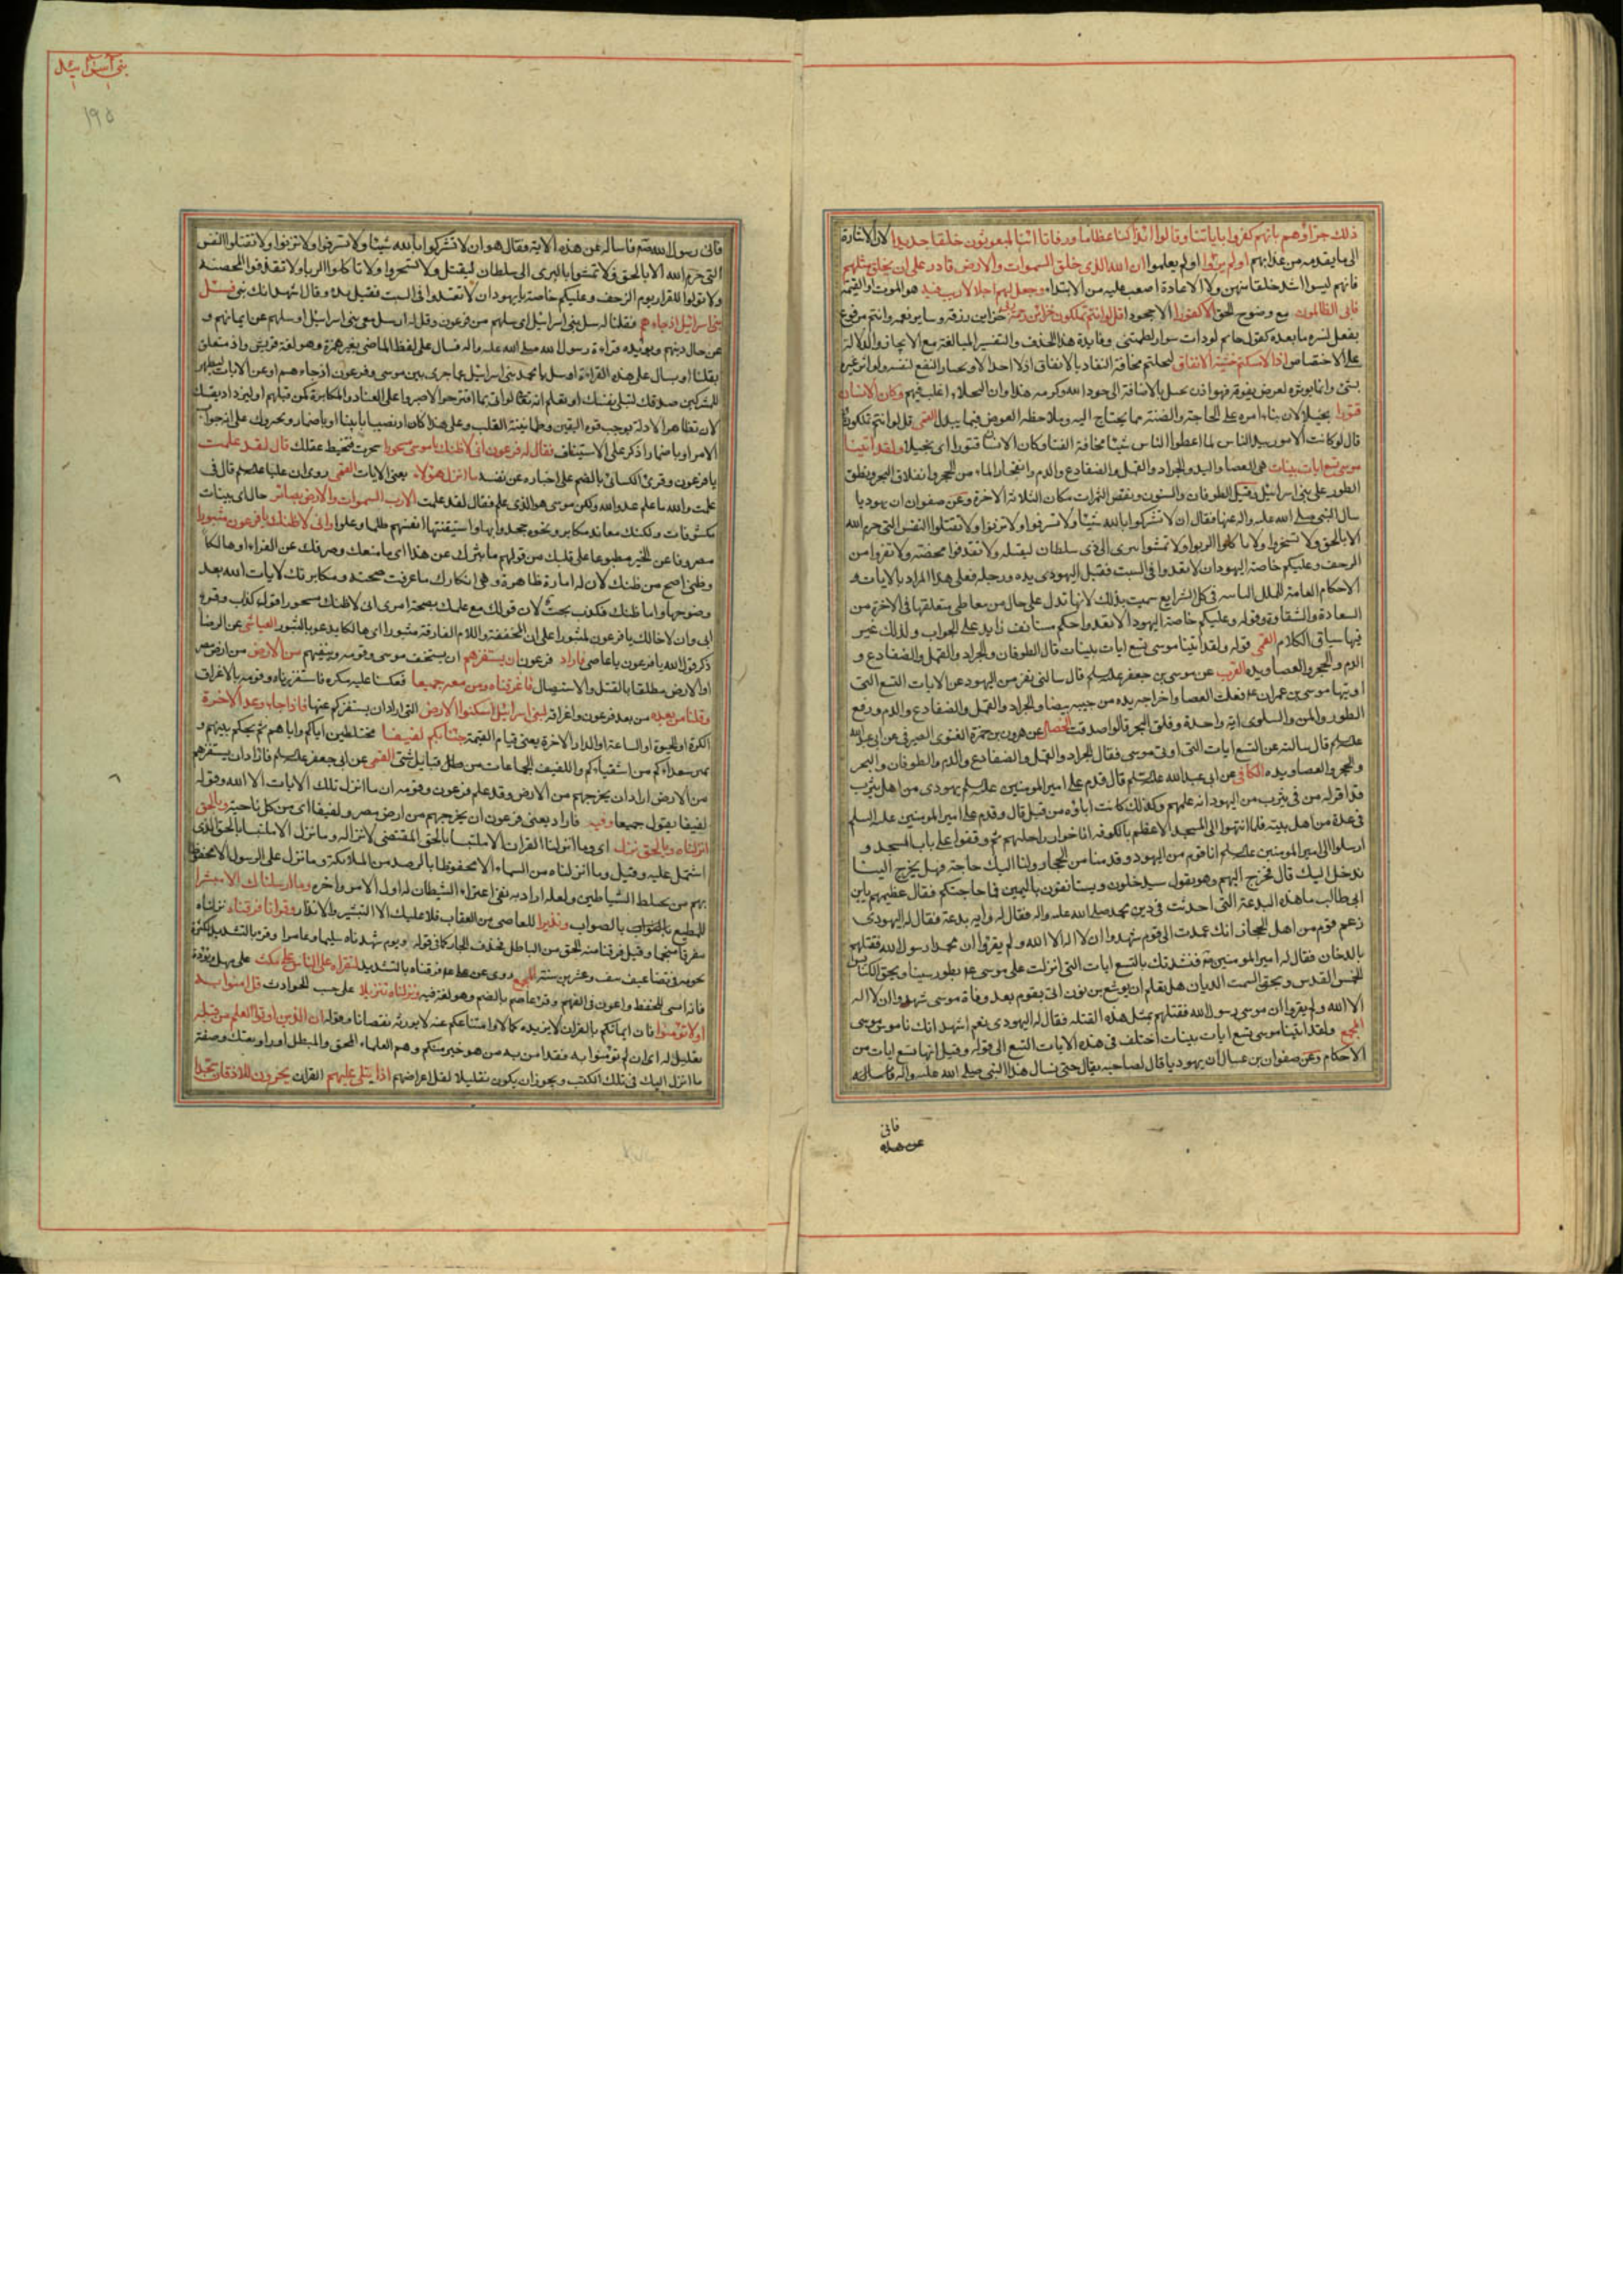 ذلك جزاؤهم بانهم كفروا باياتنا وقالوا ائذا كنا عظاما ورفاتا ائنا لمبعوثون خلقا جديدا لان الاشارة
الى ما يقدمه من عذابهم اولم يروا اولم يعلموا ان الله الذى خلق السموات والارض قادر على ان يخلق مثلهم
فانهم ليسوا اشد خلقا منهن ولا الاعادة اصعب عليه من الابتداء وجعل لهم اجلا لا ريب فيه هو الموت او القيمة
فابى الظالمون مع وضوح الحق الا كفورا الا جحودا قل لو انتم تملكون خزائن رحمة ربى خزاين رزقه وساير نعمه وانتم مرفوع
بفعل يفسره ما بعده كقول حاتم لو ذات سوار لطمتنى وفايدة هذا الحذف والتفسير المبالغة مع الايجاز والدلالة
على الاختصاص اذا لامسكتم خشية الانفاق لبخلتم مخافة النفاد بالانفاق اذ لا احد الا ويختار النفع لنفسه ولو اثر غيره
بشئ وانما يوثره لعوض يفوقه فهو اذن بخيل بالاضافة الى جود الله وكرمه هذا وان البخلاء اغلب فيهم وكان الانسان
قتورا بخيلا لان بناء امره على الحاجة والضنة بما يحتاج اليه وملاحظة العوض فيما يبذل القمى قل لو انتم تملكون
قال لو كانت الامور بيد الناس لما اعطوا الناس شيئا مخافة الفنا وكان الانسان قتورا اى بخيلا ولقد اتينا
موسى تسع ايات بينات هى العصا واليد والجراد والقمل والضفادع والدم وانفجار الماء من الحجر وانفلاق البحر ونطق
الطور على بنى اسرائيل وقيل الطوفان والسنون ونقص الثمرات مكان الثلاثة الاخرة وعن صفوان ان يهوديا
سال النبى صلى الله عليه واله عنها فقال ان لا تشركوا بالله شيئا ولا تسرقوا ولا تزنوا ولا تقتلوا النفس التى حرم الله
الا بالحق ولا تسحروا ولا تاكلوا الربوا ولا تمشوا ببرى الى ذى سلطان ليقتله ولا تقذفوا محصنة ولا تفروا من
الزحف وعليكم خاصة اليهود ان لا تعدوا فى السبت فقبل اليهودى يده ورجله فعلى هذا المراد بالايات
الاحكام العامة للملل الثابتة فى كل الشرايع سميت بذلك لانها تدل على حال من يتعاطى متعلقها فى الاخرة من
السعادة والشقاوة وقوله وعليكم خاصة اليهود الا تعدوا حكم مستانف زايد على الجواب ولذلك غير
فيها سياق الكلام القمى قوله ولقد اتينا موسى تسع ايات بينات قال الطوفان والجراد والقمل والضفادع و
الدم والحجر والعصا ويده القرب عن موسى بن جعفر عليه السلم قال سالنى نفر من اليهود عن الايات التسع التى
اوتيها موسى بن عمران ع فقلت العصا واخراجه يده من جيبه بيضاء والجراد والقمل والضفادع والدم ورفع
الطور والمن والسلوى اية واحدة وفلق البحر قالوا صدقت الخصال عن هرون بن حمزة الغنوى الصيرفى عن ابى عبد الله
عليه السلم قال سالته عن التسع ايات التى اوتى موسى فقال الجراد والقمل والضفادع والدم والطوفان والبحر
والحجر والعصا ويده الكافى عن ابى عبد الله عليه السلم قال قدم على امير المومنين عليه السلم يهودى من اهل يثرب
قد اقر له من فى يثرب من اليهود انه علمهم وكذلك كانت اباؤه من قبل قال وقدم على امير المومنين عليه السلم
فى عدة من اهل بيته فلما انتهوا الى المسجد الاعظم بالكوفة اناخوا رواحلهم ثم وقفوا على باب المسجد و
ارسلوا الى امير المومنين عليه السلم انا قوم من اليهود قدمنا من الحجاز ولنا اليك حاجة فهل تخرج الينا
ندخل اليك قال فخرج اليهم وهو يقول سيدخلون ويستانفون باليمين فما حاجتكم فقال عظيمهم يا بن
ابى طالب ما هذه البدعة التى احدثت فى دين محمد صلى الله عليه واله فقال له واية بدعة فقال له اليهودى
زعم قوم من اهل الحجاز انك عمدت الى قوم شهدوا ان لا اله الا الله ولم يقروا ان محمدا رسول الله فقتلتهم
بالدخان فقال له امير المومنين ع فنشدتك بالتسع ايات التى انزلت على موسى ع بطور سينا وبحق الكنايس
الخمس القدس وبحق السمت الديان هل تعلم ان يوشع بن نون اتى بقوم بعد وفاة موسى شهدوا ان لا اله
الا الله ولم يقروا ان موسى رسول الله فقتلهم بمثل هذه القتلة فقال له اليهودى نعم اشهد انك ناموس موسى
المجمع ولقد اتينا موسى تسع ايات بينات اختلف فى هذه الايات التسع الى قوله وقيل انها تسع ايات من
الاحكام وعن صفوان بن عسال ان يهوديا قال لصاحبه تعال حتى نسال هذا النبى صلى الله عليه واله فاساله
فاتى
عن هذه
بنى اسرائيل
۱۹۵
فاتى رسول الله ص فاساله عن هذه الاية فقال هو ان لا تشركوا بالله شيئا ولا تسرقوا ولا تزنوا ولا تقتلوا النفس
التى حرم الله الا بالحق ولا تمشوا بالبرى الى سلطان ليقتل ولا تسحروا ولا تاكلوا الربا ولا تقذفوا المحصنة
ولا تولوا للفرار يوم الزحف وعليكم خاصة يا يهود ان لا تعتدوا فى السبت فقبل يده وقال اشهد انك نبى فسئل
بنى اسرائيل اذ جاءهم فقلنا له سل بنى اسرائيل اى سلهم من فرعون وقل له ارسل معى بنى اسرائيل او سلهم عن ايمانهم و
عن حال دينهم ويؤيده قراءة رسول الله صلى الله عليه واله فسال على لفظ الماضى بغير همزة وهو لغة قريش واذ متعلق
بقلنا او بسال على هذه القراءة او سل يا محمد بنى اسرائيل عما جرى بين موسى وفرعون اذ جاءهم او عن الايات ليظهر
للمشركين صدقك لتسلى نفسك او لتعلم انه تعالى لو اتى بما اقترحوا لاصروا على العناد والمكابرة كمن قبلهم او ليزداد يقينك
لان تظاهر الادلة يوجب قوة اليقين وطمانينة القلب وعلى هذا كان اذ نصبا باتينا او باضمار يخبروك على انه جواب
الامر او باضمار اذكر على الاستيناف فقال له فرعون انى لاظنك يا موسى مسحورا سحرت فتخبط عقلك قال لقد علمت
يا فرعون وقرئ الكسائى بالضم على اخباره عن نفسه ما انزل هؤلاء يعنى الايات القمى روى ان عليا عليه السلم قال فى
علمت والله ما علم عدو الله ولكن موسى هو الذى علم فقال لقد علمت الا رب السموات والارض بصائر حال اى بينات
مكشوفات ولكنك معاند مكابر ونحوه جحدوا بها واستيقنتها انفسهم ظلما وعلوا وانى لاظنك يا فرعون مثبورا
مصروفا عن الخير مطبوعا على قلبك من قولهم ما ثبرك عن هذا اى ما منعك وصرفك عن الفراء او هالكا
وظنى اصح من ظنك لان له امارة ظاهرة وهى انكارك ما عرفت صحته ومكابرتك لايات الله بعد
وضوحها واما ظنك فكذب بحت لان قولك مع علمك بصحة امرى انى لاظنك مسحورا قول كذاب وقرئ
ابى وان لاخالك يا فرعون لمثبورا على ان المخففة واللام الفارقة مثبورا اى هالكا يدعو بالثبور العياشى عن الرضا
ذكر قول الله يا فرعون يا عاصى فاراد فرعون ان يستفزهم ان يستخف موسى وقومه وينفيهم من الارض من ارض مصر
او الارض مطلقا بالقتل والاستيصال فاغرقناه ومن معه جميعا فعكسنا عليه مكره فاستفززناه وقومه بالاغراق
وقلنا من بعده من بعد فرعون واغراقه لبنى اسرائيل اسكنوا الارض التى اراد ان يستفزكم عنها فاذا جاء وعد الاخرة
الكرة او الحيوة او الساعة او الدار الاخرة يعنى قيام القيمة جئنا بكم لفيفا مختلطين اياكم واياهم ثم نحكم بينهم و
نميز سعداءكم من اشقياءكم واللفيف الجماعات من قبايل شتى القمى عن ابى جعفر عليه السلم فاراد ان يستفزهم
من الارض اراد ان يخرجهم من الارض وقد علم فرعون وقومه ان ما انزل تلك الايات الا الله وقوله
لفيفا يقول جميعا وفيه فاراد يعنى فرعون ان يخرجهم من ارض مصر ولفيفا اى من كل ناحية وبالحق
انزلناه وبالحق نزل اى وما انزلنا القران الا ملتبسا بالحق المقتضى لانزاله وما نزل الا ملتبسا بالحق الذى
اشتمل عليه وقيل وما انزلناه من السماء الا محفوظا بالرصد من الملائكة وما نزل على الرسول الا محفوظا
بهم من تخليط الشياطين ولعله اراد به نفى اعتراء الشيطان له اول الامر واخره وما ارسلناك الا مبشرا
للمطيع بالثواب ونذيرا للعاصى من العقاب فلا عليك الا التبشير والانذار وقرانا فرقناه نزلناه
مفرقا منجما وقيل فرقنا منه الحق من الباطل فحذف الجار كما فى قوله ويوم شهدناه سليما وعامرا وقرئ بالتشديد لكثرة
نجومه فى تضاعيف نيف وعشرين سنة المجمع روى عن على ع فرقناه بالتشديد لتقراه على الناس على مكث على مهل وتؤدة
فانه ايسر للحفظ واعون فى الفهم وقرء عاصم بالضم وهو لغة فيه ونزلناه تنزيلا على حسب الحوادث قل امنوا به
او لا تؤمنوا فان ايمانكم بالقران لا يزيده كمالا وامتناعكم عنه لا يورثه نقصانا وقوله ان الذين اوتوا العلم من قبله
تعليل له اى ان لم تؤمنوا به فقد امن به من هو خير منكم وهم العلماء المحق والمبطل او راوا نعتك وصفة
ما انزل اليك فى تلك الكتب ويجوز ان يكون تعليلا لقل اعراضهم اذا يتلى عليهم القران يخرون للاذقان سجدا